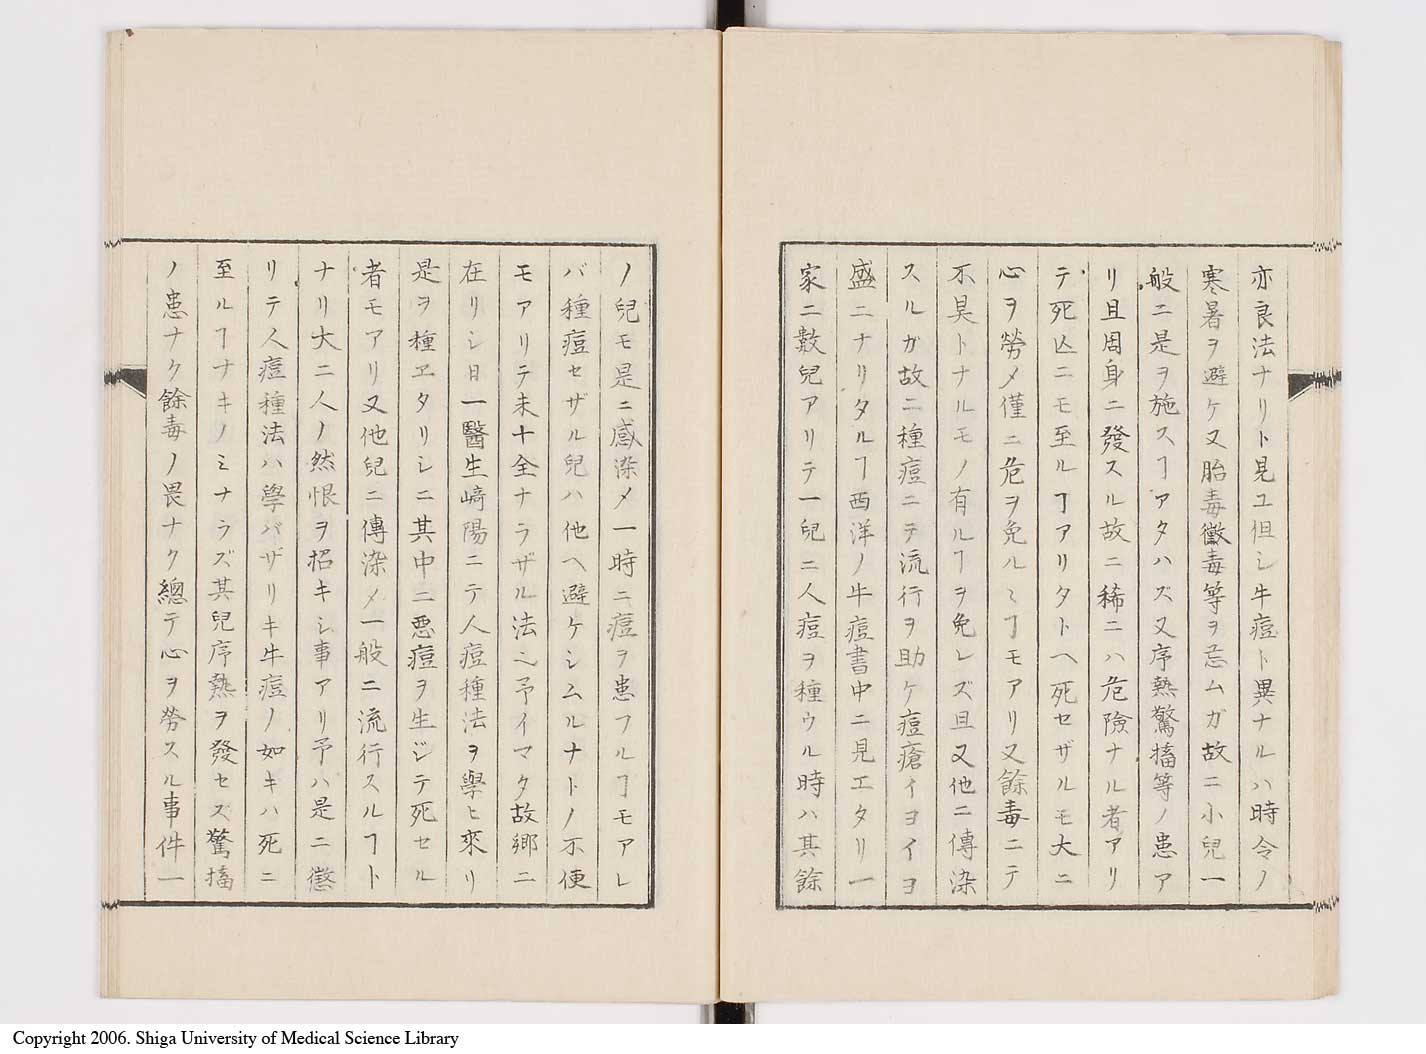 亦良法ナリト見ユ但シ牛痘ト異ナルハ時令ノ
寒暑ヲ避ケ又胎毒黴毒等ヲ忌ムガ故ニ小兒一
般ニ是ヲ施スヿアタハズ又序熱驚搐等ノ患ア
リ且周身ニ發スル故ニ稀ニハ危險ナル者アリ
テ死亡ニモ至ルヿアリタトヘ死セザルモ大ニ
心ヲ勞メ僅ニ危ヲ免ルヽヿモアリ又餘毒ニテ
不具トナルモノ有ルヿヲ免レズ且又他ニ傳染
スルガ故ニ種痘ニテ流行ヲ助ケ痘瘡イヨイヨ
盛ニナリタルヿ西洋ノ牛痘書中ニ見エタリ一
家ニ數兒アリテ一兒ニ人痘ヲ種ウル時ハ其餘
ノ兒モ是ニ感染メ一時ニ痘ヲ患フルヿモアレ
バ種痘セザル兒ハ他ヘ避ケシムルナトノ不便
モアリテ未十全ナラザル法也予イマタ故郷ニ
在リシ日一醫生﨑陽ニテ人痘種法ヲ學ヒ來リ
是ヲ種ヱタリシニ其中ニ悪痘ヲ生ジテ死セル
者モアリ又他兒ニ傳染メ一般ニ流行スルヿト
ナリ大ニ人ノ然恨ヲ招キシ事アリ予ハ是ニ懲
リテ人痘種法ハ學バザリキ牛痘ノ如キハ死ニ
至ルヿナキノミナラズ其兒序熱ヲ發セズ驚搐
ノ患ナク餘毒ノ畏ナク總テ心ヲ勞スル事件一
Copyright 2006. Shiga University of Medical Science Library